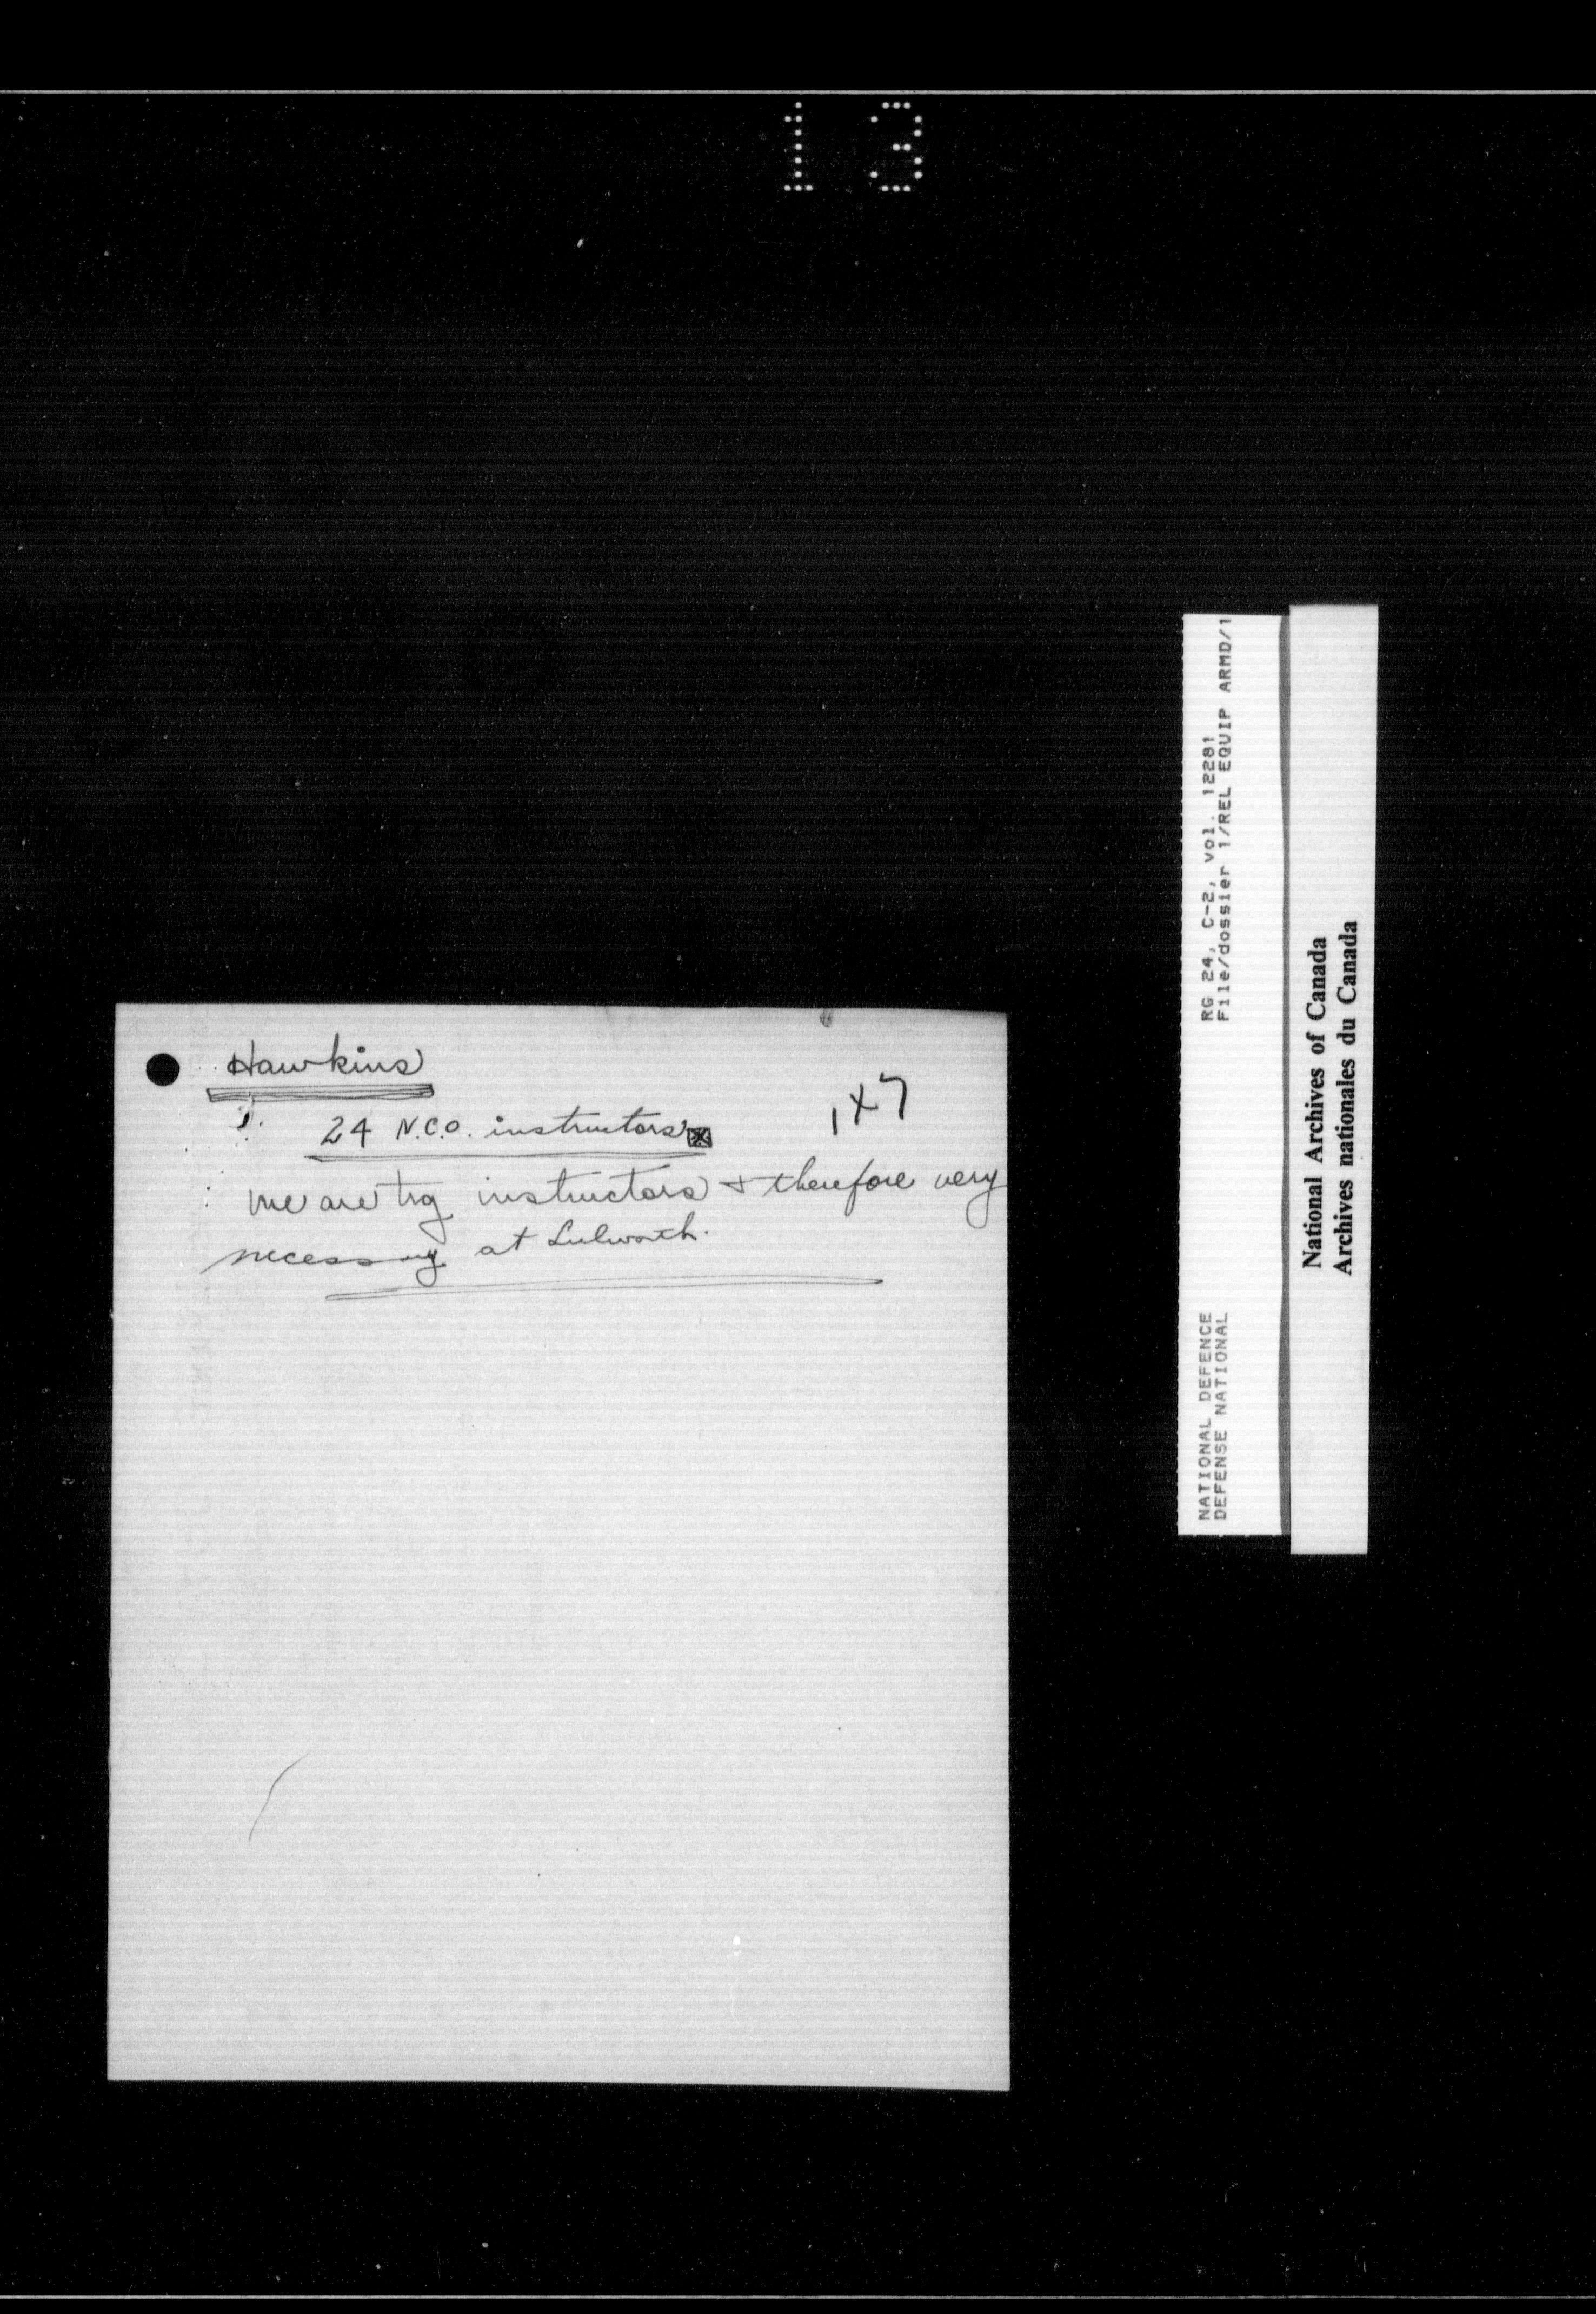 13
Hawkins
1X7
24 N.C.O. instructors
We are trg instructors & therefore very
necessary at Lulworth.
RG 24, C-2, vol. 12281
File/dossier 1/REL EQUIP ARMD/1
NATIONAL DEFENCE
DEFENSE NATIONAL
National Archives of Canada
Archives nationales du Canada